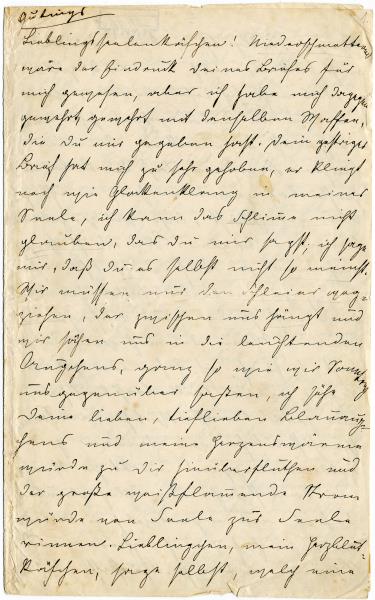 Lieblingsseelenkäfchen! Niederschmetternd
wäre der Eindruck Deines Briefes für
mich gewesen, aber ich habe mich dagegen
gewehrt gewehrt mit denselben Waffen,
die Du mir gegeben hast. Dein gestriger
Brief hat mich zu sehr gehoben, er klingt
noch wie Glockenklang in meiner
Seele, ich kann das Schlimme nicht
glauben, das du mir sagst, ich sage
mir, daß du es selbst nicht so meinst.
Wir müssen nur den Schleier weg-
ziehen, der zwischen uns hängt und
wir sähen uns in die leuchtenden
Äugchens, ganz so wie wir Sonntag
uns gegenüber saßen, ich sähe
Deine lieben, tieflieben Blauäug-
chens und meine Herzenswärme
würde zu Dir hinüberfluthen und
der große weißflammende Strom
würde von Seele zu Seele
rinnen. Lieblingchen, mein Herzblut-
käfchen, sage selbst, welch eine